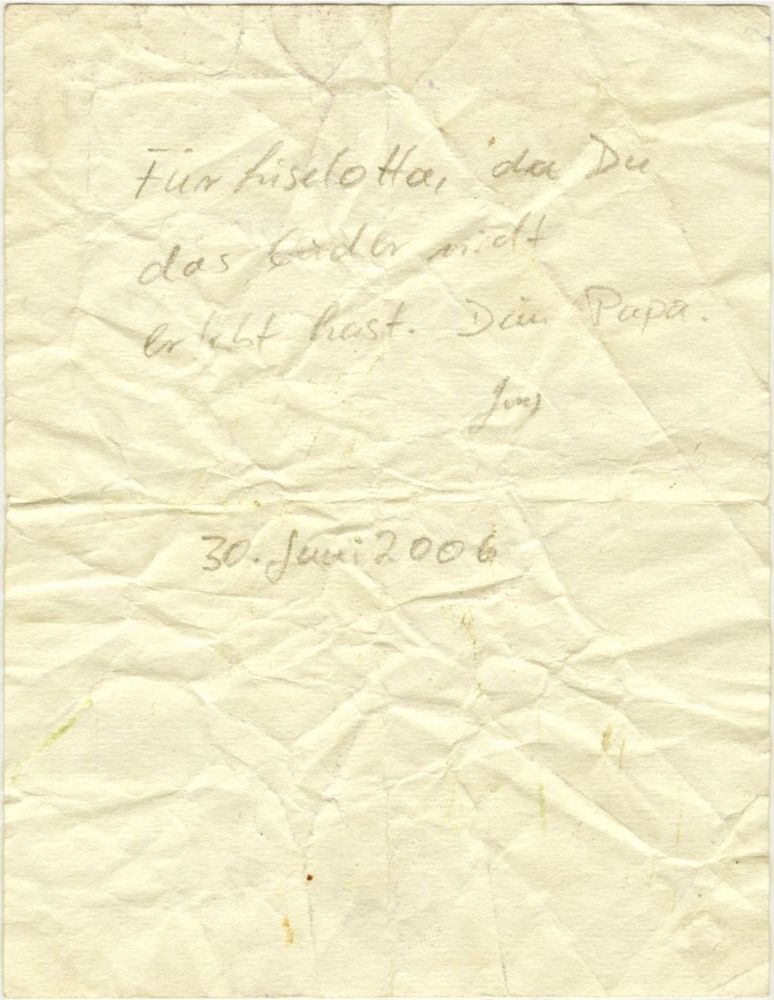 Für Liselotta, da Du
das leider nicht
erlebt hast. Dein Papa.
30. Juni 2006